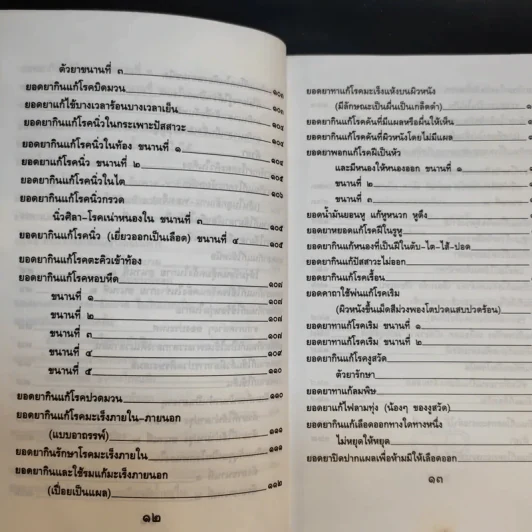 ตัวยาขนานที่ ๓
ยอดยากินแก้โรคบิดมวน
ยอดยาแก้ไข้บางเวลาร้อนบางเวลาเย็น
ยอดยากินแก้โรคนิ่วในกระเพาะปัสสาวะ
ยอดยากินแก้โรคนิ่วในท้อง ขนานที่ ๑
ยอดยาแก้โรคนิ่ว ขนานที่ ๒
ยอดยากินแก้โรคนิ่วในไต
ยอดยากินแก้โรคนิ่วกรวด
นิ่วศิลา-โรคเน่าหนองใน ขนานที่ ๓
ยอดยากินแก้โรคนิ่ว (เยี่ยวออกเป็นเลือด) ขนานที่ ๔
ยอดยากินแก้โรคตะคิวเข้าท้อง
ยอดยากินแก้โรคหอบหืด ๑๐๗
ขนานที่ ๑ ๑๐๗
ขนานที่ ๒ ๑๐๗
ขนานที่ ๓ ๑๐๘
ขนานที่ ๔ ๑๐๙
ขนานที่ ๕ ๑๑๐
ยอดยากินแก้โรคปวดมวน ๑๑๐
ยอดยากินแก้โรคมะเร็งภายใน-ภายนอก
(แบบอาถรรพ์) ๑๑๑
ยอดยากินรักษาโรคมะเร็งภายใน ๑๑๑
ยอดยากินและใช้รมแก้มะเร็งภายนอก
(เปื่อยเป็นแผล) ๑๑๒
๑๒
ยอดยาทาแก้โรคมะเร็งแห้งบนผิวหนัง
(มีลักษณะเป็นผื่นเป็นเกล็ดดำ)
ยอดยากินแก้โรคคันที่มีแผลหรือผื่นให้เห็น
ยอดยากินแก้โรคคันที่ผิวหนังโดยไม่มีแผล
ยอดยาพอกแก้โรคฝีเป็นหัว
และมีหนองให้หนองออก ขนานที่ ๑
ขนานที่ ๒
ขนานที่ ๓
ยอดน้ำมันยอนหู แก้หูหนวก หูตึง
ยอดยาหยอดแก้โรคฝีในรูหู
ยอดยากินแก้หนองที่เป็นฝีในตับ-ไต-ไส้-ปอด
ยอดยากินแก้ปัสสาวะไม่ออก
ยอดยากินแก้โรคเรื้อน
ยอดคาถาใช้พ่นแก้โรคเริม
(ผิวหนังขึ้นเม็ดสีม่วงพองโตปวดแสบปวดร้อน)
ยอดยาทาแก้โรคเริม ขนานที่ ๑
ยอดยาทาแก้โรคเริม ขนานที่ ๒
ยอดยากินแก้โรคงูสวัด
ตัวยารักษา
ยอดยาทาแก้ลมพิษ
ยอดยาแก้ไฟลามทุ่ง (น้องๆ ของงูสวัด)
ยอดยากินแก้เลือดออกทางใดทางหนึ่ง
ไม่หยุดให้หยุด
ยอดยาปิดปากแผลเพื่อห้ามมิให้เลือดออก
๑๓